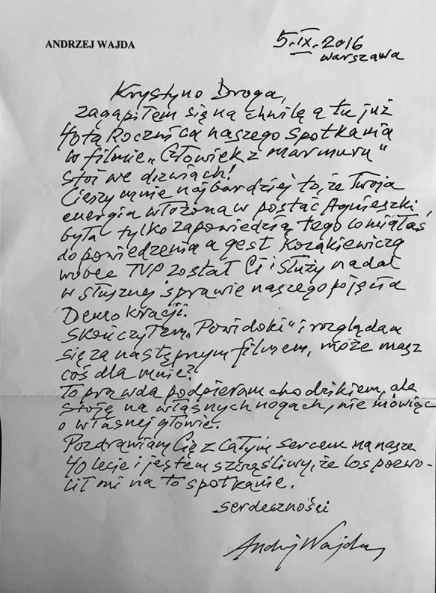 ANDRZEJ WAJDA
5.IX.2016
Warszawa
Krystyno Droga,
zagapiłem się na chwilę a tu już
40ta Rocznica naszego spotkania
w filmie „Człowiek z marmuru"
stoi we drzwiach!
Cieszy mnie najbardziej to, że Twoja
energia włożona w postać Agnieszki
była tylko zapowiedzią tego co miałaś
do powiedzenia a gest Kozakiewicza
wobec TVP został Ci i służy nadal
w słusznej sprawie naszego pojęcia
Demokracji.
Skończyłem „Powidoki" i rozglądam
się za następnym filmem, może masz
coś dla mnie?
To prawda podpieram chodzikiem, ale
stoję na własnych nogach, nie mówiąc
o własnej głowie.
Pozdrawiam Cię z całym sercem na nasze
40 lecie i jestem szczęśliwy, że los pozwo-
lił mi na to spotkanie.
serdeczności
Andrzej Wajda